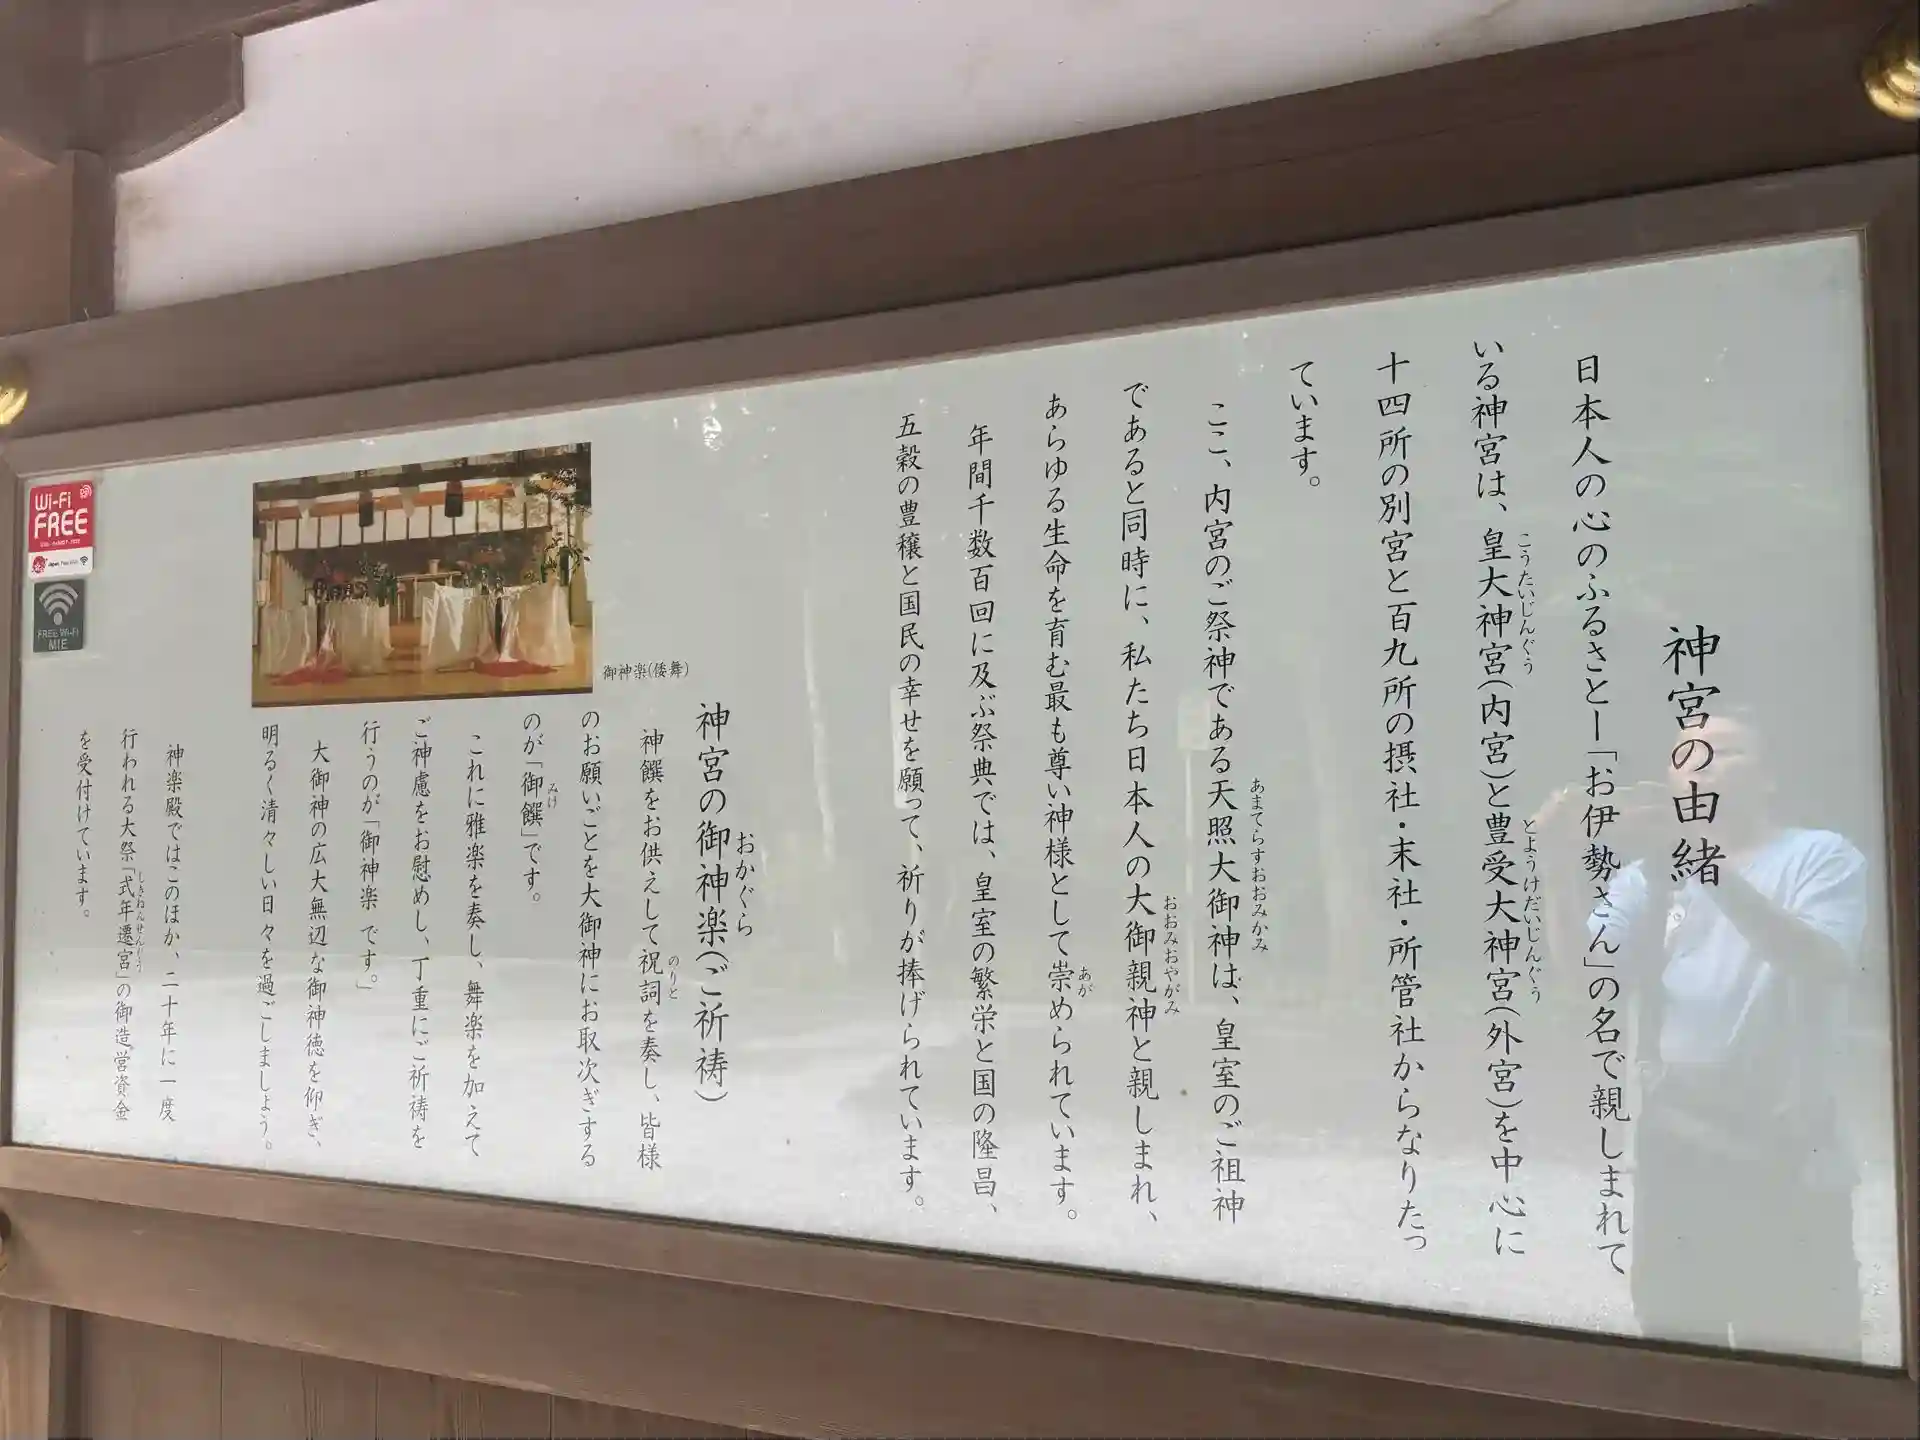 神宮の由緒
日本人の心のふるさとー「お伊勢さん」の名で親しまれて
いる神宮は、皇大神宮(内宮)と豊受大神宮(外宮)を中心に
こうたいじんぐう
とようけだいじんぐう
十四所の別宮と百九所の摂社・末社・所管社からなりたっ
ています。
ここ、内宮のご祭神である天照大御神は、皇室のご祖神
あまてらすおおみかみ
であると同時に、私たち日本人の大御親神と親しまれ、
おおみおやがみ
あらゆる生命を育む最も尊い神様として崇められています。
あが
年間千数百回に及ぶ祭典では、皇室の繁栄と国の隆昌、
五穀の豊穣と国民の幸せを願って、祈りが捧げられています。
御神楽(倭舞)
神宮の御神楽(ご祈祷)
おかぐら
神饌をお供えして祝詞を奏し、皆様
のりと
のお願いごとを大御神にお取次ぎする
のが「御饌」です。
みけ
これに雅楽を奏し、舞楽を加えて
ご神慮をお慰めし、丁重にご祈祷を
行うのが「御神楽 です。」
大御神の広大無辺な御神徳を仰ぎ、
明るく清々しい日々を過ごしましょう。
神楽殿ではこのほか、二十年に一度
行われる大祭「式年遷宮」の御造営資金
しきねんせんぐう
を受付けています。
Wi-Fi
FREE
Japan. Free Wi-Fi
FREE Wi-Fi
MIE